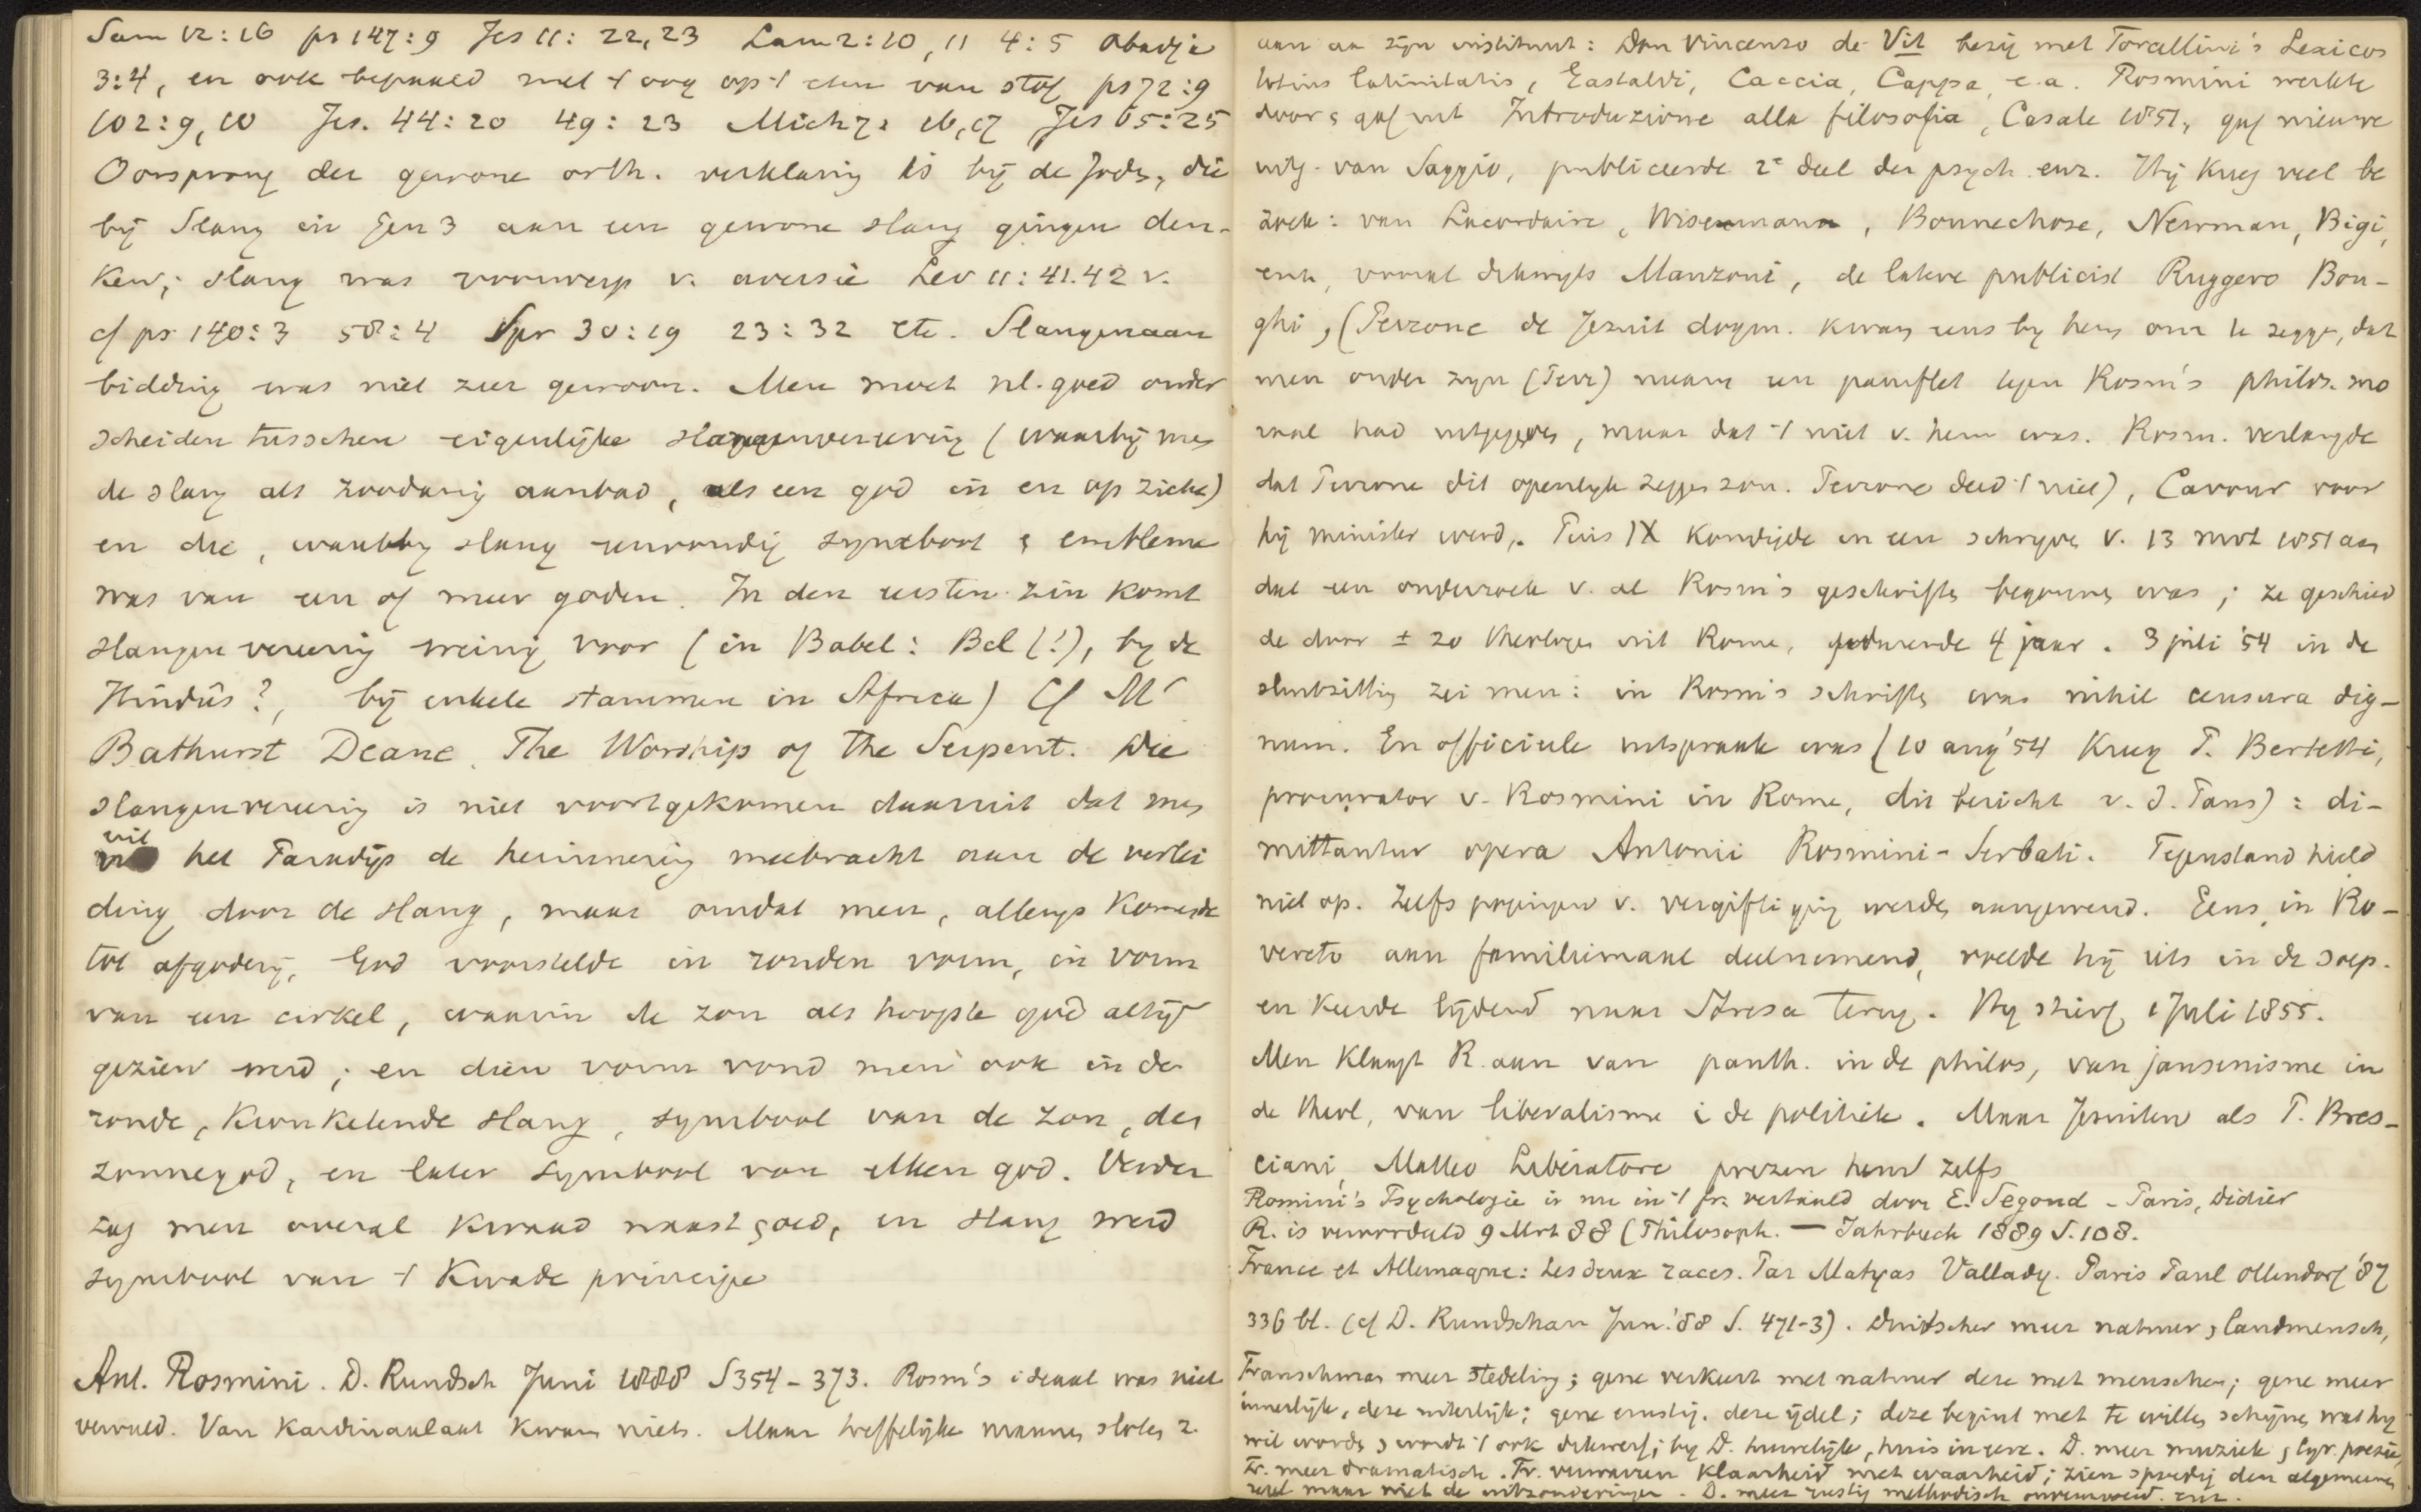 Sam 12:16 ps 147:9 Jes 11: 22,23 Lam 2:10, 11 4:5 Obadja
3:4, en ook bepaald met 't oog op 't eten van stof ps 72:9
102:9,10 Jes. 44:20 49:23 Mich 7: 16,17 Jes 65:25
Oorsprong der gewone orth. verklaring is bij de Joden, die
bij Slang in Gen 3 aan een gewone slang gingen den-
ken; slang was voorwerp v. aversie Lev 11:41.42 v.
cf ps 140:3 58:4 Spr 30:19 23:32 etc. Slangenaan
bidding was niet zeer gewoon. Men moet nl. goed onder
scheiden tusschen eigenlijke slangenvereering (waarbij men
de slang als zoodanig aanbad, als een god in en op zichz)
en die, waarbij slang eenvoudig symbool & embleme
was van een of meer goden. In den eersten zin komt
slangenvereering weinig voor (in Babel: Bel (!), by de
Hindûs?, bij enkele stammen in Africa) Cf M'
Bathurst Deane, The Worship of the Serpent. Die
slangenvereering is niet voortgekomen daaruit dat men
uit
het Paradijs de herinnering meebracht aan de verlei
ding door de slang, maar omdat men, allengs komende
tot afgoderij, God voorstelde in ronden vorm, in vorm
van een cirkel, waarin de zon als hoogste god altijd
gezien werd; en dien vorm vond men ook in de
ronde, kronkelende slang, symbool van de zon, den
zonnegod, en later symbool van elken god. Verder
zag men overal kwaad naast goed, en slang werd
symbool van 't kwade principe
Ant. Rosmini. D. Rundsch Juni 1888 S354-373. Rosm's ideaal was niet
vervuld. Van Kardinaalaat kwam niets. Maar treffelijke mannen sloten z.
aan aan zijn instituut: Don Vincenzo de Vit bezig met Forcellini's Lexicon
totius latinitatis, Gastaldi, Caccia, Cappa, e.a. Rosmini werkte
door, gaf uit Introduzione alla filosofia, Casale 1851, gaf nieuwe
uitg. van Saggio, publiceerde 2e deel der psych enz. Hij kreeg veel be
zoek: van Lacordaire, Wisemann, Bonnechose, Newman, Bigi,
enz, vooral dikwijls Manzoni, de latere publicist Ruggero Bon-
ghi, (Perrone de Jezuit dogm. kwam eens by hem om te zeggen, dat
men onder zijn (Perr) naam een pamflet tegen Rosm's philos. mo
raal had uitgegeven, maar dat 't niet v. hem was. Rosm. verlangde
dat Perrone dit openlijk zeggen zou. Perrone deed 't niet), Cavour voor
hij minister werd. Pius IX kondigde in een schrijven v. 13 mrt 1851 aan
dat een onderzoek v. al Rosm's geschriften begonnen was; ze geschied
de door ± 20 theologen uit Rome, gedurende 4 jaar. 3 juli '54 in de
slotzitting zei men: in Rosm's schriften was nihil censura dig-
num. En officieele uitspraak was (10 aug '54 kreeg P. Bertetti,
procurator v. Rosmini in Rome, dit bericht v. d. Paus): di-
mittantur opera Antonii Rosmini-Serbati. Tegenstand hield
niet op. Zelfs pogingen v. vergiftiging werden aangewend. Eens in Ro-
vereto aan familiemaal deelnemend, voelde hij iets in de soep.
en keerde lijdend naar Stresa terug. Hij stierf 1 Juli 1855.
Men klaagt R. aan van panth. in de philos, van jansenisme in
de theol, van liberalisme i de politiek. Maar Jezuiten als P. Bres-
ciani, Matteo Liberatore prezen hem zelfs
Romini's Psychologie is nu in 't fr. vertaald door E. Segond - Paris, Didier
R. is veroordeeld 9 Mrt 88 (Philosoph. — Jahrbuch 1889 S. 108.
France et Allemagne: Les deux races. Par Matyas Vallady. Paris Paul Ollendorf '87
336 bl. (cf D. Rundschau Jun. '88 S. 471-3). Duitscher meer natuur, landmensch,
Franschman meer stedeling; gene verkeert met natuur deze met menschen; gene meer
innerlijk, deze uiterlijk; gene ernstig. deze ijdel; deze begint met te willen schijnen, wat hy
wil worden & wordt 't ook dikwerf; by D. huwelijk, huis in eere. D. meer muziek, lyr. poezie,
Fr. meer dramatisch. Fr. verwarren klaarheid met waarheid; zien spoedig den algemeenen
regel maar niet de uitzonderingen. D. meer rustig methodisch enz.